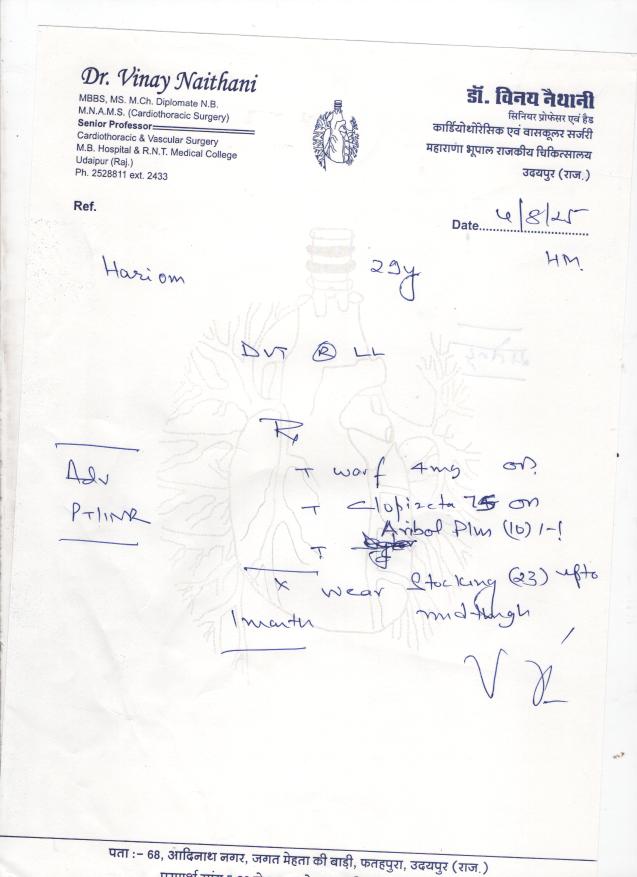 Dr. Vinay Naithani
MBBS, MS. M.Ch. Diplomate N.B.
M.N.A.M.S. (Cardiothoracic Surgery)
Senior Professor
Cardiothoracic & Vascular Surgery
M.B. Hospital & R.N.T. Medical College
Udaipur (Raj.)
Ph. 2528811 ext. 2433
डॉ. विनय नैथानी
सिनियर प्रोफेसर एवं हैड
कार्डियोथोरेसिक एवं वासकूलर सर्जरी
महाराणा भूपाल राजकीय चिकित्सालय
उदयपुर (राज.)
Ref.
Date 4/8/25
HM.
Hariom 29y
DVT Ⓡ LL
Rx
Adv
PT/INR
T warf 4mg
T 75 on
T Plus (10) 1-1
x wear Stocking (23) upto
midthigh
1 month
पता :– 68, आदिनाथ नगर, जगत मेहता की बाड़ी, फतहपुरा, उदयपुर (राज.)